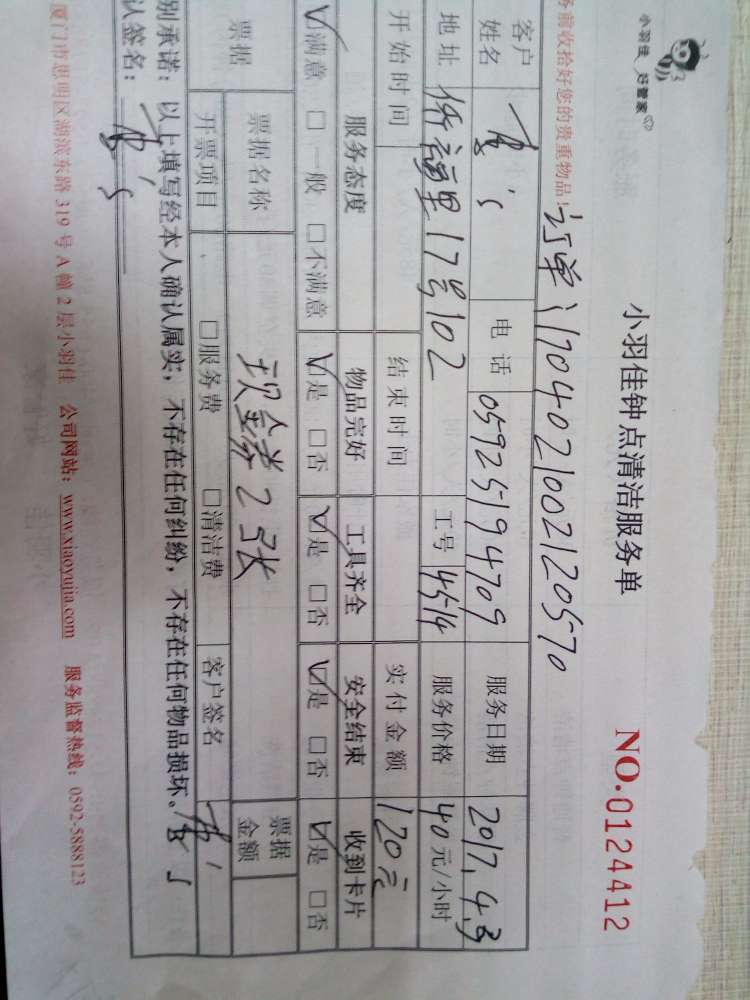 小羽佳 好管家
小羽佳钟点清洁服务单 NO.0124412
务前收拾好您的贵重物品! 订单:1704021002120570
客户姓名 电话 05925194709 服务日期 2017.4.3
地址 17号102 工号 4514 服务价格 40元/小时
开始时间 结束时间 实付金额 120元
服务态度 物品完好 工具齐全 安全结束 收到卡片
☑满意 □一般 □不满意 ☑是 □否 ☑是 □否 ☑是 □否 ☑是 □否
票据 票据名称 现金券2张 票据金额
开票项目 □服务费 □清洁费 客户签名
别承诺：以上填写经本人确认属实，不存在任何纠纷，不存在任何物品损坏。
认签名：
厦门市思明区湖滨东路 319 号 A 幢 2 层小羽佳 公司网站：www.xiaoyujia.com 服务监督热线：0592-5888123